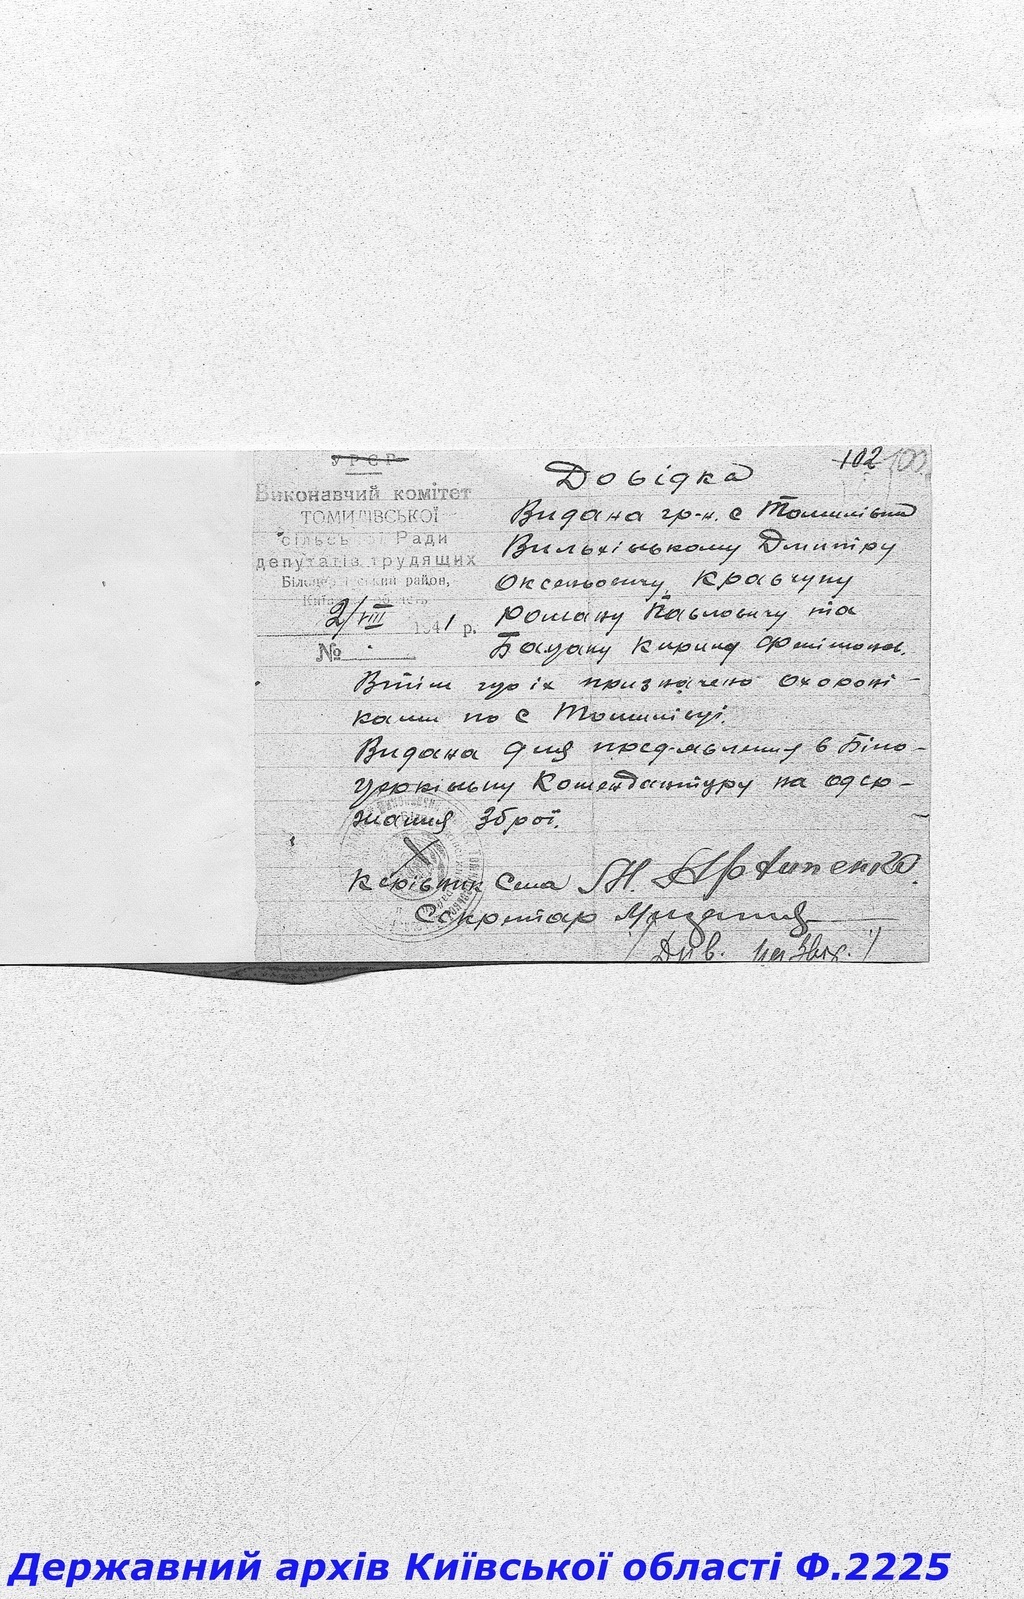 УРСР
Виконавчий комітет
ТОМИЛІВСЬКОЇ
сільської Ради
депутатів трудящих
Білоцерківський район,
Київська область
2/VIII 1941 р.
№
102 100
Довідка
Видана гр-н. с Томилівка
Вильхінькому Дмитру
Оксеньовичу, Кравчуну
Роману Павловичу та
Базану Кирилу
Втім що іх призначено охороні-
ками по с Томилівці.
Видана для пред-мвлення в Біло-
церківську Комендантуру на одер-
жання Зброї.
Керівник Села
Секретар
/Див. на звор./
Державний архів Київської області Ф.2225